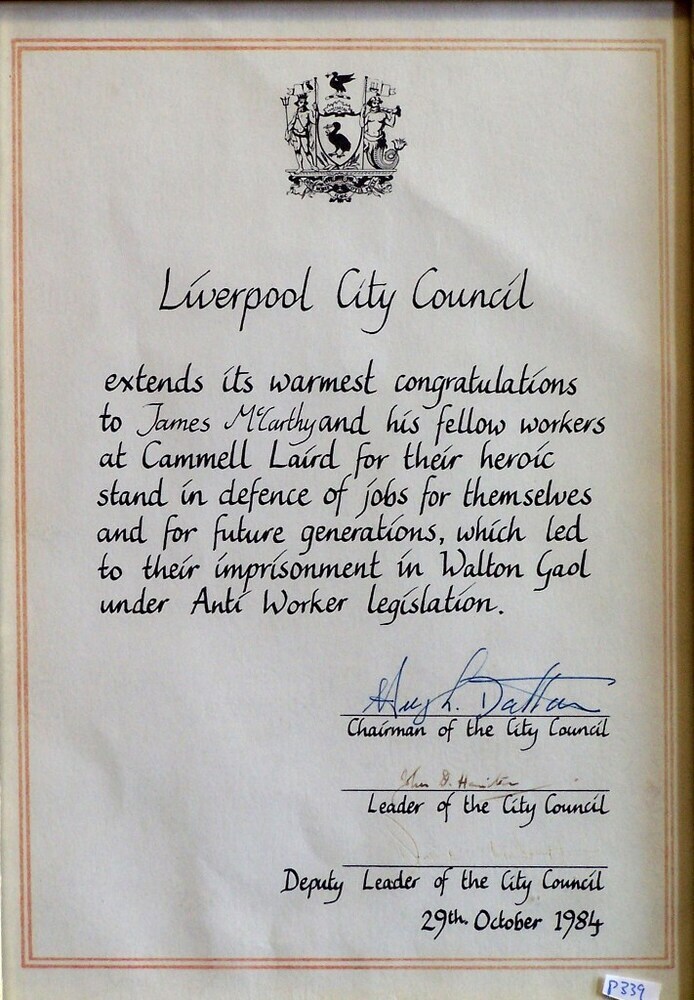 Liverpool City Council
extends its warmest congratulations
to James McCarthy and his fellow workers
at Cammell Laird for their heroic
stand in defence of jobs for themselves
and for future generations, which led
to their imprisonment in Walton Gaol
under Anti Worker legislation.
Hugh. Dalton
Chairman of the City Council
John D. Hamilton
Leader of the City Council
Deputy Leader of the City Council
29th. October 1984
P339